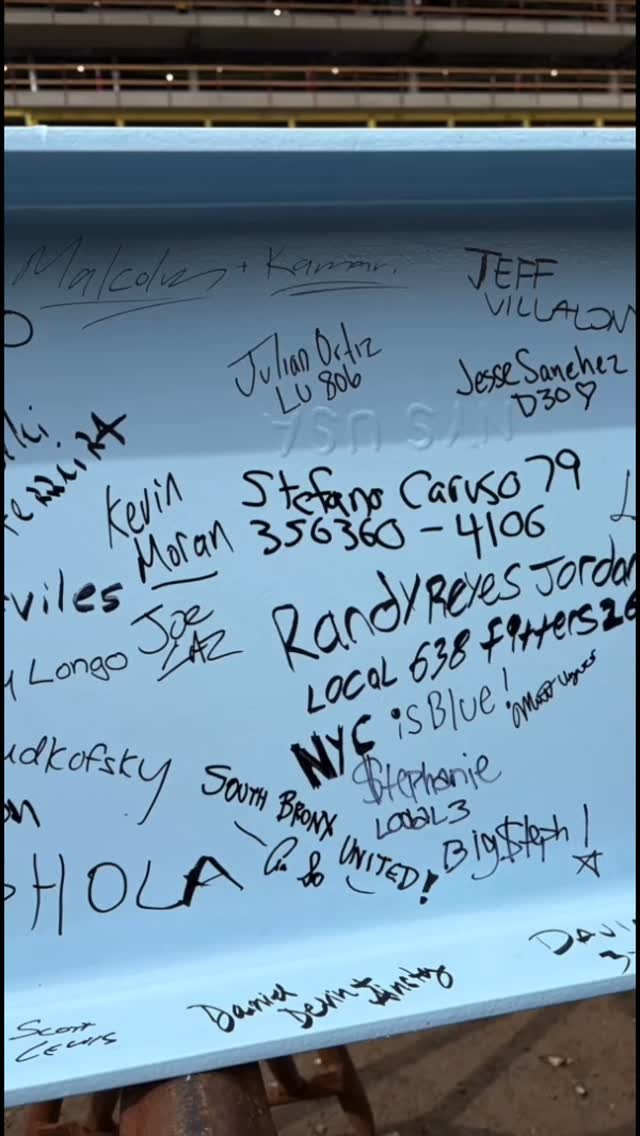 Malcolm + Kamari.
JEFF
VILLALON
Julian Ortiz
LU 806
Jesse Sanchez
D30♡
NYS USA
Kevin
Moran
Stefano Caruso 79
356360-4106
viles
Joe
LAZ
Longo
Randy Reyes Jordan
LOCAL 638 Fitters 26
NYC isBlue!
udkofsky
$tephanie
LOCAL 3
SOUTH BRONX
UNITED!
Big$teph!
HOLA
DAVI
Daniel
Devin +
Scott
Lewis